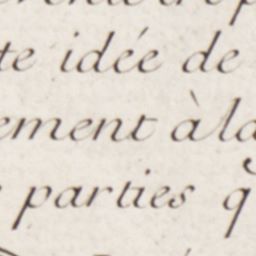 te idée de
ement à la
parties q